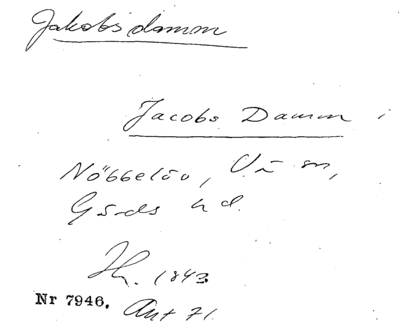 Jakobsdamm
Jacobs Damm i
Nöbbelöv, V. n m,
Gärds hd.
Th. 1843
Nr 7946. Ant 71